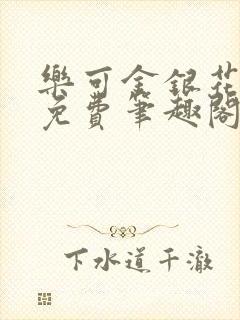 樂可金銀花
免費筆趣閣
下水道干澈